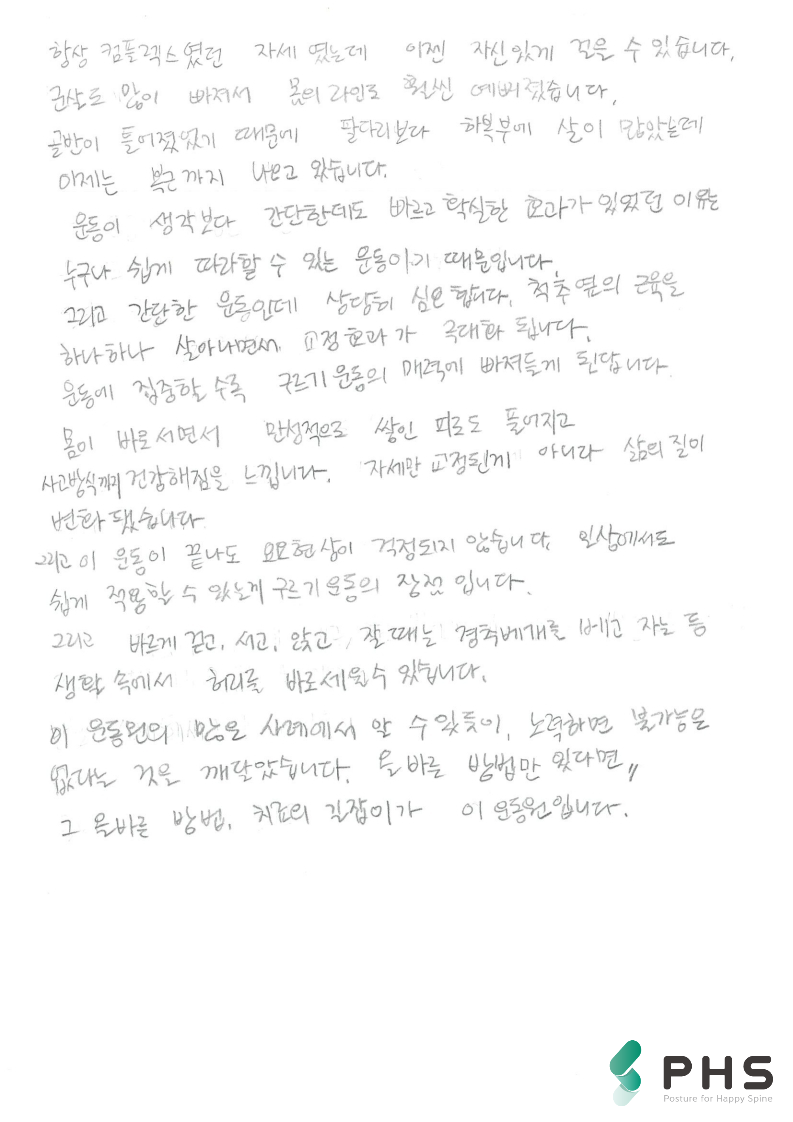 항상 컴플렉스였던 자세 였는데 이젠 자신있게 걸을 수 있습니다.
군살도 많이 빠져서 몸의 라인도 훨씬 예뻐졌습니다.
골반이 틀어졌었기 때문에 팔다리보다 하복부에 살이 많았는데
이제는 복근까지 나오고 있습니다.
운동이 생각보다 간단한데도 빠르고 확실한 효과가 있었던 이유는
누구나 쉽게 따라할 수 있는 운동이기 때문입니다.
그리고 간단한 운동인데 상당히 심오합니다. 척추옆의 근육을
하나하나 살아나면서, 교정효과가 극대화 됩니다.
운동에 집중할 수록 구르기운동의 매력에 빠져들게 된답니다.
몸이 바로서면서 만성적으로 쌓인 피로도 풀어지고
사고방식까지 건강해짐을 느낍니다. 자세만 교정된게 아니라 삶의 질이
변화됐습니다
그리고 이 운동이 끝나도 요요현상이 걱정되지 않습니다. 일상에서도
쉽게 적용할 수 있는게 구르기운동의 장점 입니다.
그리고 바르게 걷고, 서고, 앉고, 잘때는 경추베개를 베고 자는 등
생활 속에서 허리를 바로세울수 있습니다.
이 운동원의 많은 사례에서 알 수 있듯이, 노력하면 불가능은
없다는 것을 깨달았습니다. 올바른 방법만 있다면 〃
그 올바른 방법, 치료의 길잡이가 이 운동원입니다.
PHS
Posture for Happy Spine